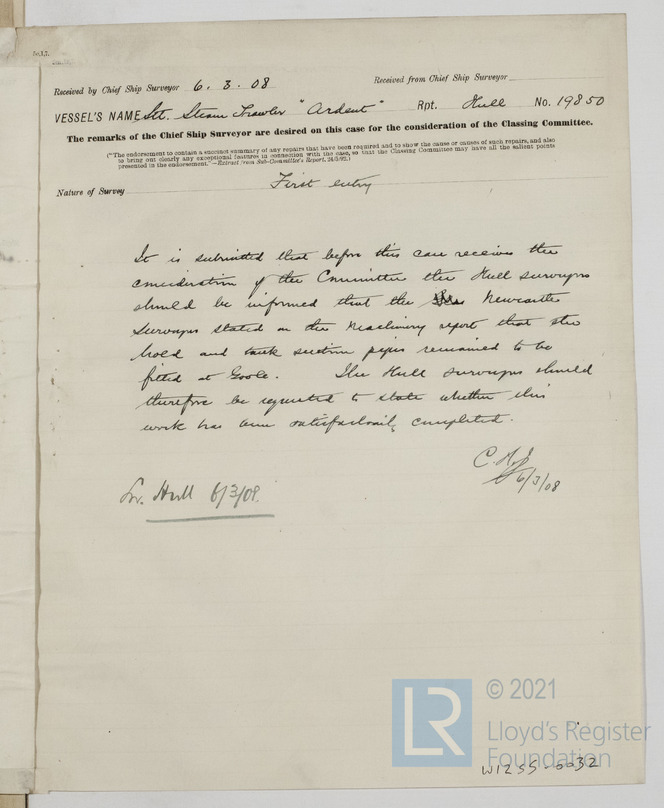 Received by Chief Ship Surveyor 6.3.08 Received from Chief Ship Surveyor
VESSEL'S NAME Stl. Steam Trawler "Ardent" Rpt. Hull No. 19850
The remarks of the Chief Ship Surveyor are desired on this case for the consideration of the Classing Committee.
("The endorsement to contain a succinct summary of any repairs that have been required and to show the cause or causes of such repairs, and also
to bring out clearly any exceptional features in connection with the case, so that the Classing Committee may have all the salient points
presented in the endorsement."—Extract from Sub-Committee's Report, 24/5/92.)
Nature of Survey First entry
It is submitted that before this case receives the
consideration of the Committee the Hull surveyors
should be informed that the Newcastle
Surveyors stated on the Machinery report that the
hold and tank suction pipes remained to be
fitted at Goole. The Hull surveyors should
therefore be requested to state whether this
work has been satisfactorily completed.
6/3/08
Hull 6/3/08.
LR © 2021
Lloyd's Register
Foundation
W1255-0032